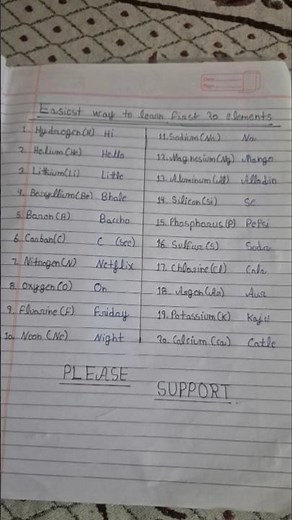 Easiest way to learn first 20 elements
1. Hydrogen(H) Hi
2. Helium(He) Hello
3. Lithium(Li) Little
4. Beryllium(Be) Bhole
5. Boron(B) Baccho
6. Carbon(C) C (see)
7. Nitrogen(N) Netflix
8. Oxygen(O) On
9. Fluorine(F) Friday
10. Neon(Ne) Night
11. Sodium(Na) Na
12. Magnesium(Mg) Mango
13. Aluminum(Al) Alladin
14. Silicon(Si) Se
15. Phosphorus(P) Pepsi
16. Sulfur(S) Soda
17. Chlorine(Cl) Cola
18. Argon(Ar) Aur
19. Potassium(K) Kaju
20. Calcium(Ca) Catle
PLEASE SUPPORT